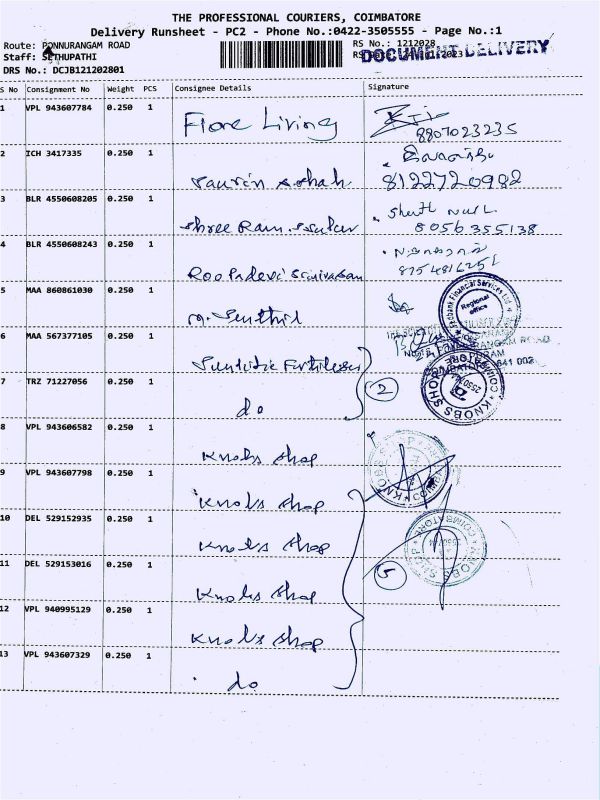 THE PROFESSIONAL COURIERS, COIMBATORE
Delivery Runsheet - PC2 - Phone No.:0422-3505555 - Page No.:1
Route: PONNURANGAM ROAD
RS No.: 1212028
DOCUMENT DELIVERY
Staff: SETHUPATHI
DRS No.: DCJB121202801
S No Consignment No Weight PCS Consignee Details Signature
1 VPL 943607784 0.250 1 Fiore Living 8807023235
2 ICH 3417335 0.250 1 8122720982
3 BLR 4550608205 0.250 1 Shree Ram 8056355138
4 BLR 4550608243 0.250 1 Roopadevi Srinivasan
5 MAA 860861030 0.250 1 M. Senthil
Financial Services Ltd
Regional office
6 MAA 567377105 0.250 1
KNOBS SHOP
COIMBATORE
7 TRZ 71227056 0.250 1 do 2
8 VPL 943606582 0.250 1 Knobs shop
9 VPL 943607798 0.250 1 Knobs shop
10 DEL 529152935 0.250 1 Knobs shop
KNOBS SHOP
COIMBATORE
11 DEL 529153016 0.250 1 Knobs shop 5
12 VPL 940995129 0.250 1 Knobs shop
13 VPL 943607329 0.250 1 do